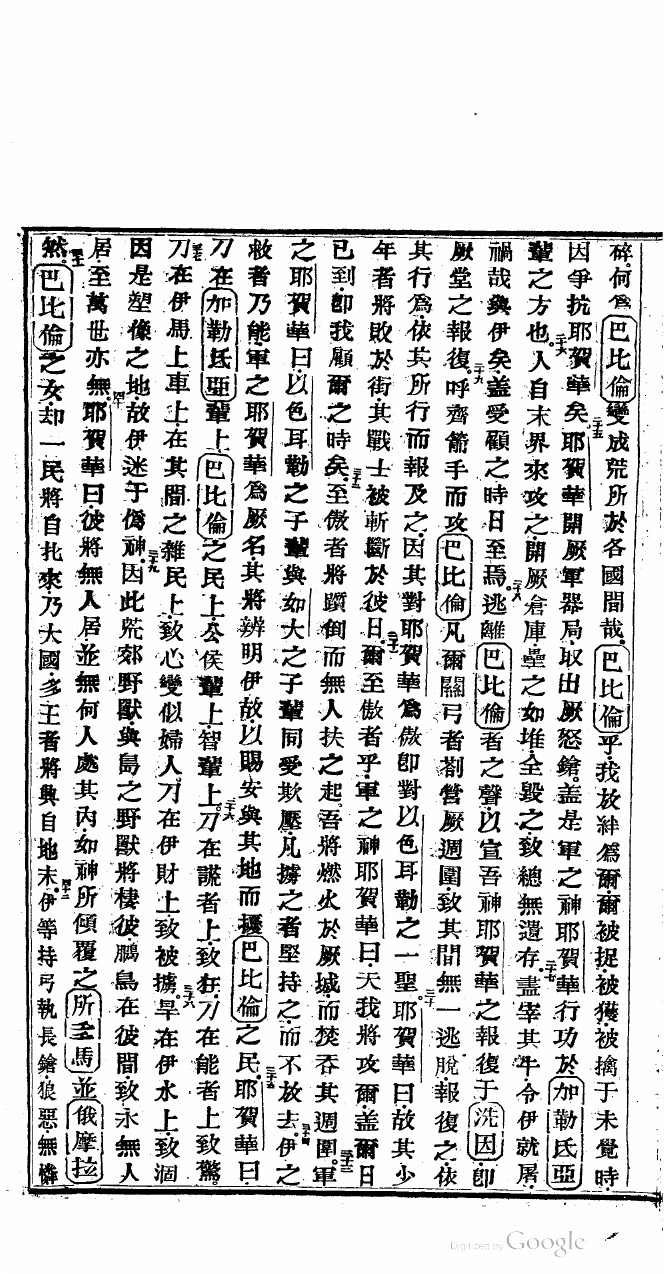 碎何爲巴比倫變成荒所於各國間哉巴比倫乎我放絆爲爾爾被捉被獲被擒于未覺時
因爭抗耶賀華矣二十五耶賀華開厥軍器局取出厥怒鎗蓋是軍之神耶賀華行功於加勒氐亞
輩之方也二十六人自末界來攻之開厥倉庫壘之如堆全毀之致總無遺存二十七盡宰其牛令伊就屠
禍哉與伊矣蓋受顧之時日至焉二十八逃離巴比倫者之聲以宣吾神耶賀華之報復于洗因卽
厥堂之報復二十九呼齊箭手而攻巴比倫凡爾關弓者劄營厥週圍致其間無一逃脫報復之依
其行爲依其所行而報及之因其對耶賀華爲傲卽對以色耳勒之一聖三十耶賀華曰故其少
年者將敗於街其戰士被斬斷於彼日三十一爾至傲者乎軍之神耶賀華曰夭我將攻爾蓋爾日
已到卽我顧爾之時矣三十二至傲者將躓倒而無人扶之起吾將燃火於厥城而焚吞其週圍三十三軍
之耶賀華曰以色耳勒之子輩與如大之子輩同受欺壓凡擄之者堅持之而不放去三十四伊之
救者乃能軍之耶賀華爲厥名其將辨明伊故以賜安與其地而擾巴比倫之民三十五耶賀華曰
刀在加勒氐亞輩上巴比倫之民上公侯輩上智輩上三十六刀在謊者上致狂刀在能者上致驚
三十七刀在伊馬上車上在其間之雜民上致心變似婦人刀在伊財上致被擄三十八旱在伊水上致涸
因是塑像之地故伊迷于僞神三十九因此荒郊野獸與島之野獸將棲彼鵬鳥在彼間致永無人
居至萬世亦無四十耶賀華曰彼將無人居並無何人處其內如神所傾覆之所至馬並俄摩拉
然四十一巴比倫之女却一民將自北來乃大國多王者將興自地末四十二伊等持弓執長鎗狼惡無憐
Digitized by Google